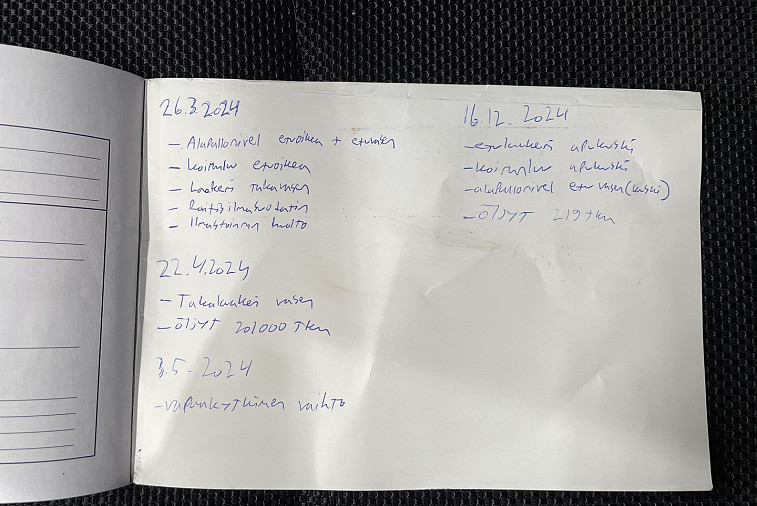 26.3.2024
- Alapallonivel etuoikea + etuvasen
- koiranluu etuoikea
- Laakeri takavasen
- Raitisilmasuodatin
- Ilmastoinnin huolto
22.4.2024
- Takalaakeri vasen
- ÖljyT 201000 Tkm
3.5.2024
- vapaakytkimen vaihto
16.12.2024
- etulaakeri apukuski
- koiranluu apukuski
- alapallonivel etu vasen (kuski)
- ÖljyT 219 tkm